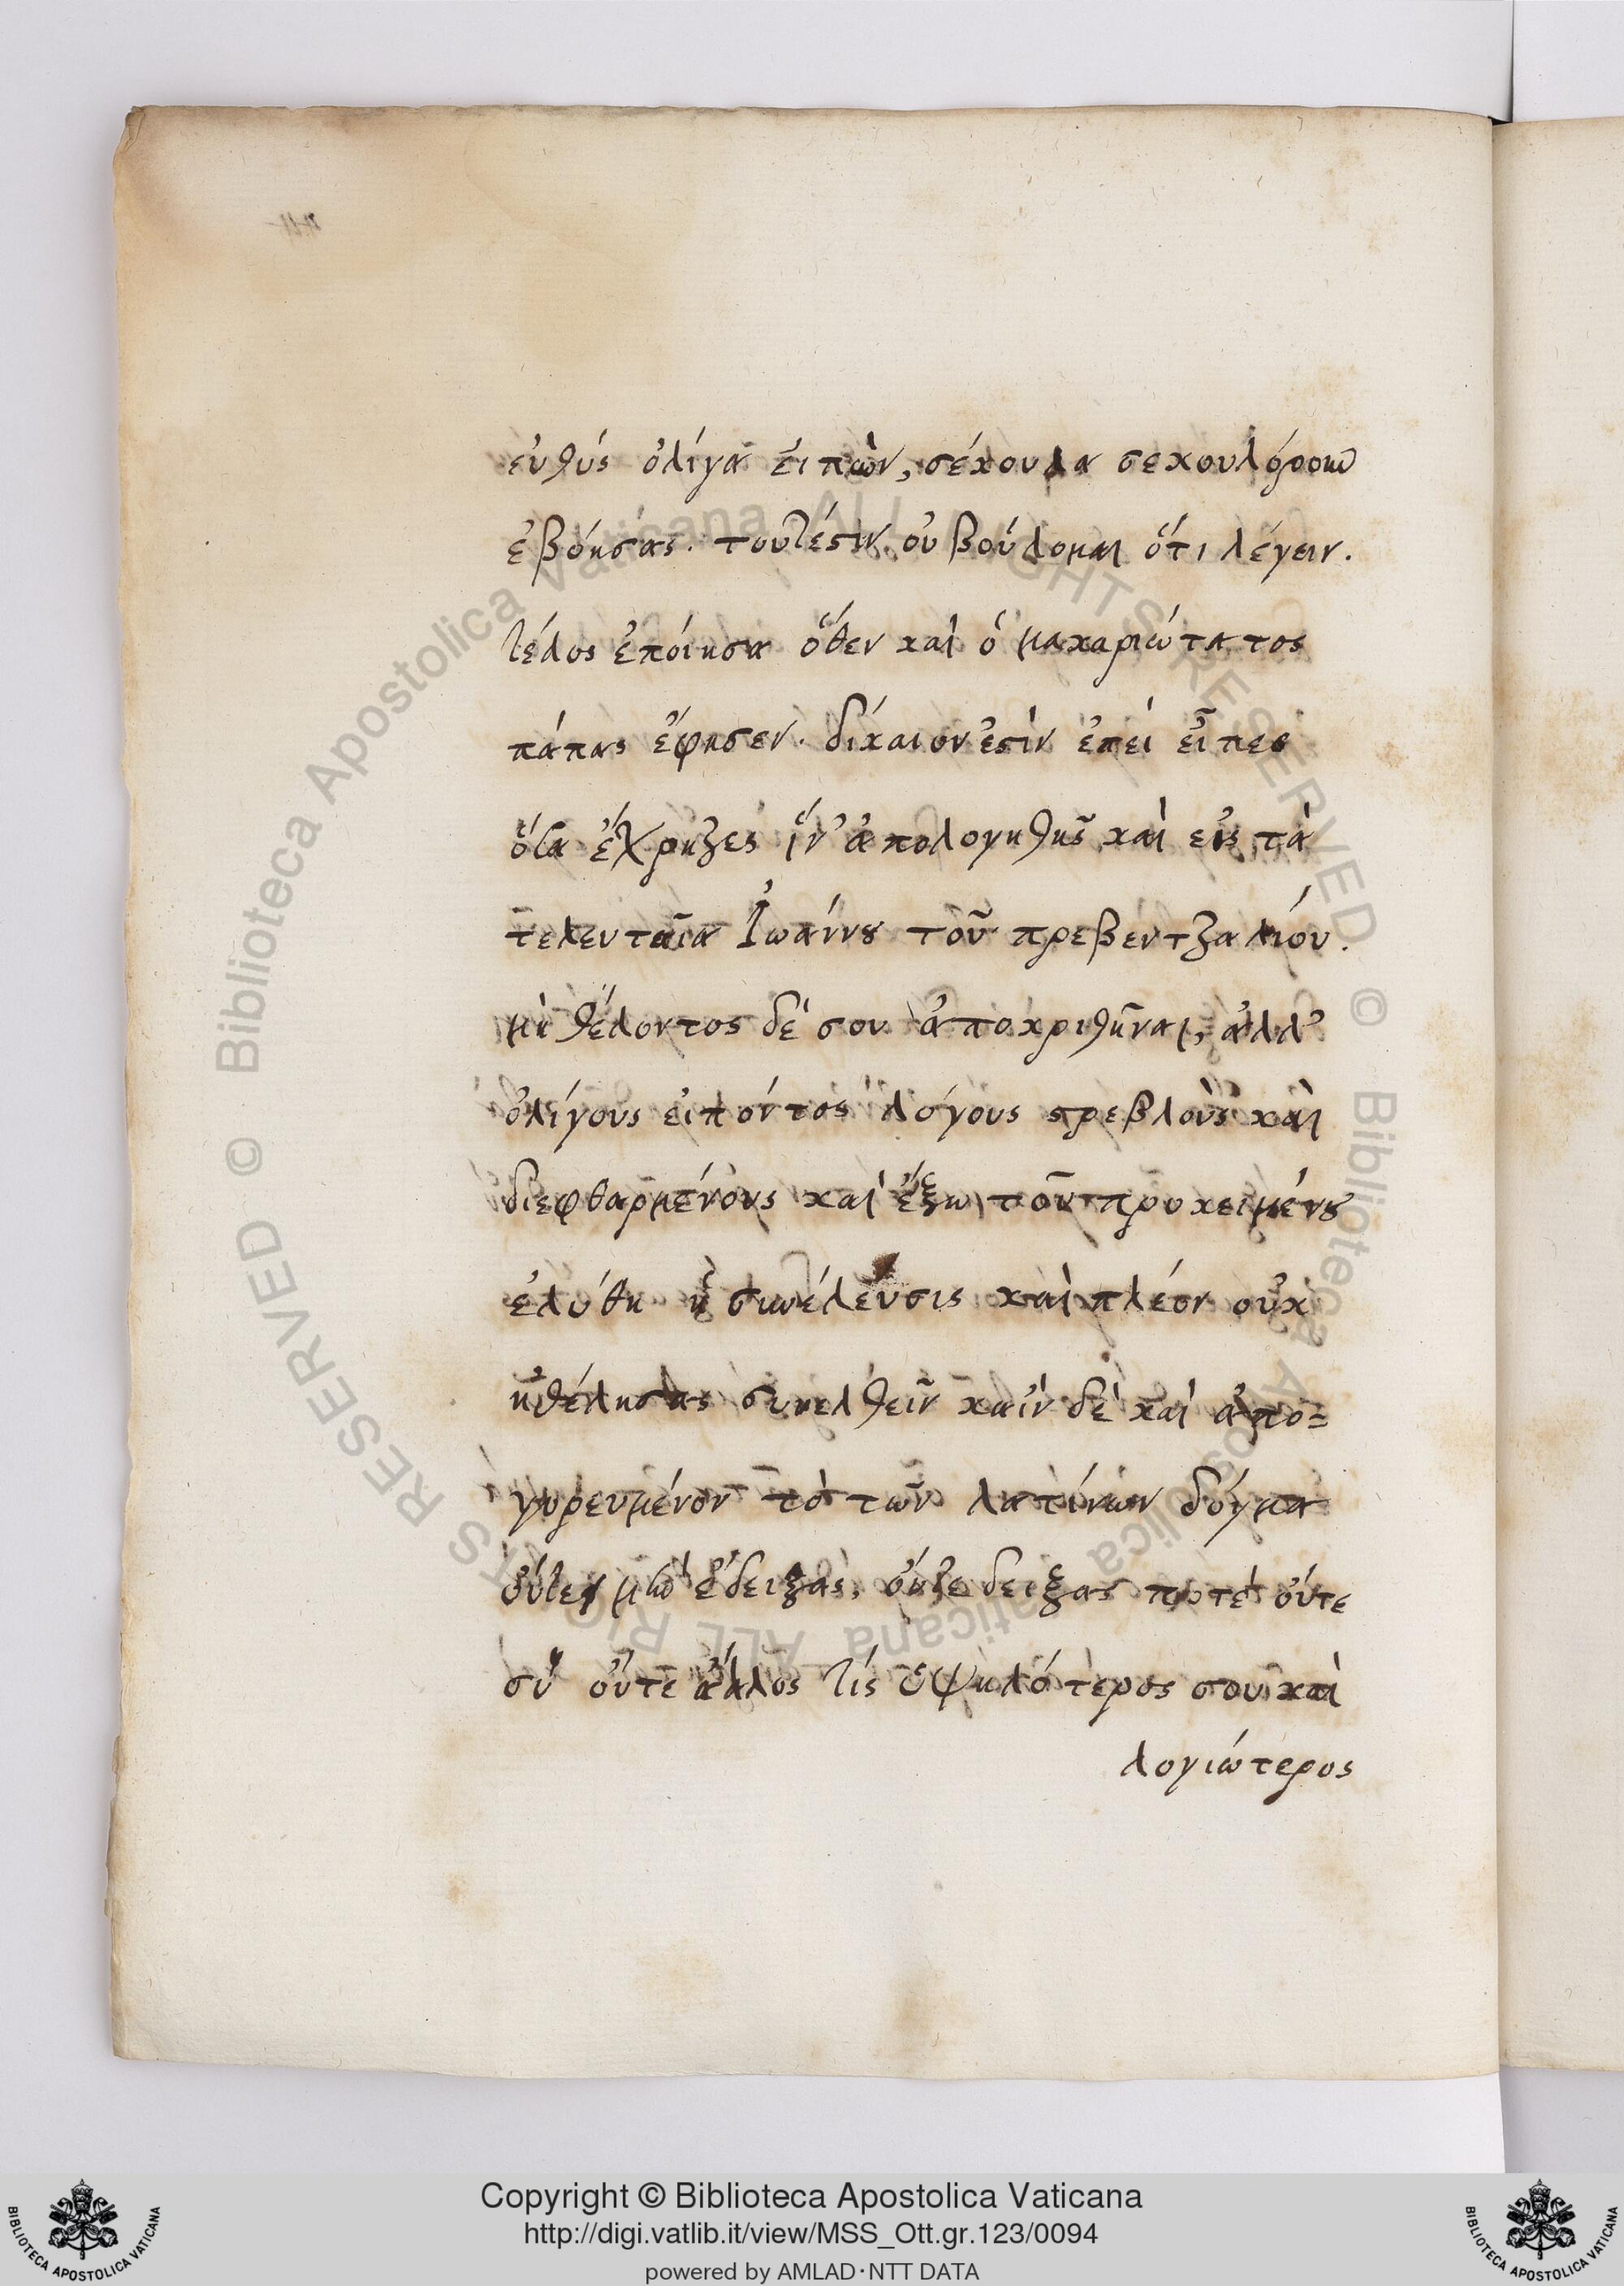 εὐθύς ὀλίγα εἰπὼν, σέκουλα σεκουλόρουμ
ἐβόησας. τουτέστιν οὐ βούλομαι ὅτι λέγειν.
τέλος ἐποίησα ὅθεν καὶ ὁ μακαριώτατος
πάπας ἔφησεν. δίκαιον ἐστὶν ἐπεὶ εἶπες
ὅσα ἔχρηζες ἵν' ἀπολογηθῇς καὶ εἰς τὰ
τελευταῖα Ἰωάννου τοῦ πρεβεντζαλίου.
μὴ θέλοντος δέ σου ἀποκριθῆναι, ἀλλ'
ὀλίγους εἰπόντος λόγους στρεβλοὺς καὶ
διεφθαρμένους καὶ ἔξω τοῦ προκειμένου
ἐλύθη ἡ συνέλευσις καὶ πλέον οὐκ
ἠθέλησας συνελθεῖν καὶν δὲ καὶ ἀπο=
γορευμένον τὸ τῶν λατίνων δόγμα
οὔτε μὴν ἔδειξας, οὔτε δείξας ποτὲ οὔτε
σὺ οὔτε ἄλλος τίς ὑψηλότερος σου καὶ
λογιώτερος
Copyright © Biblioteca Apostolica Vaticana
http://digi.vatlib.it/view/MSS_Ott.gr.123/0094
powered by AMLAD·NTT DATA
BIBLIOTECA APOSTOLICA VATICANA
BIBLIOTECA APOSTOLICA VATICANA